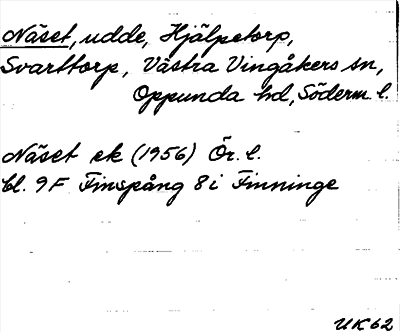 Näset, udde, Hjälpetorp,
Svarttorp, Västra Vingåkers sn,
Oppunda hd, Söderm. l.
Näset ek (1956) Ör. l.
bl. 9F Finspång 8i Finninge
UK62